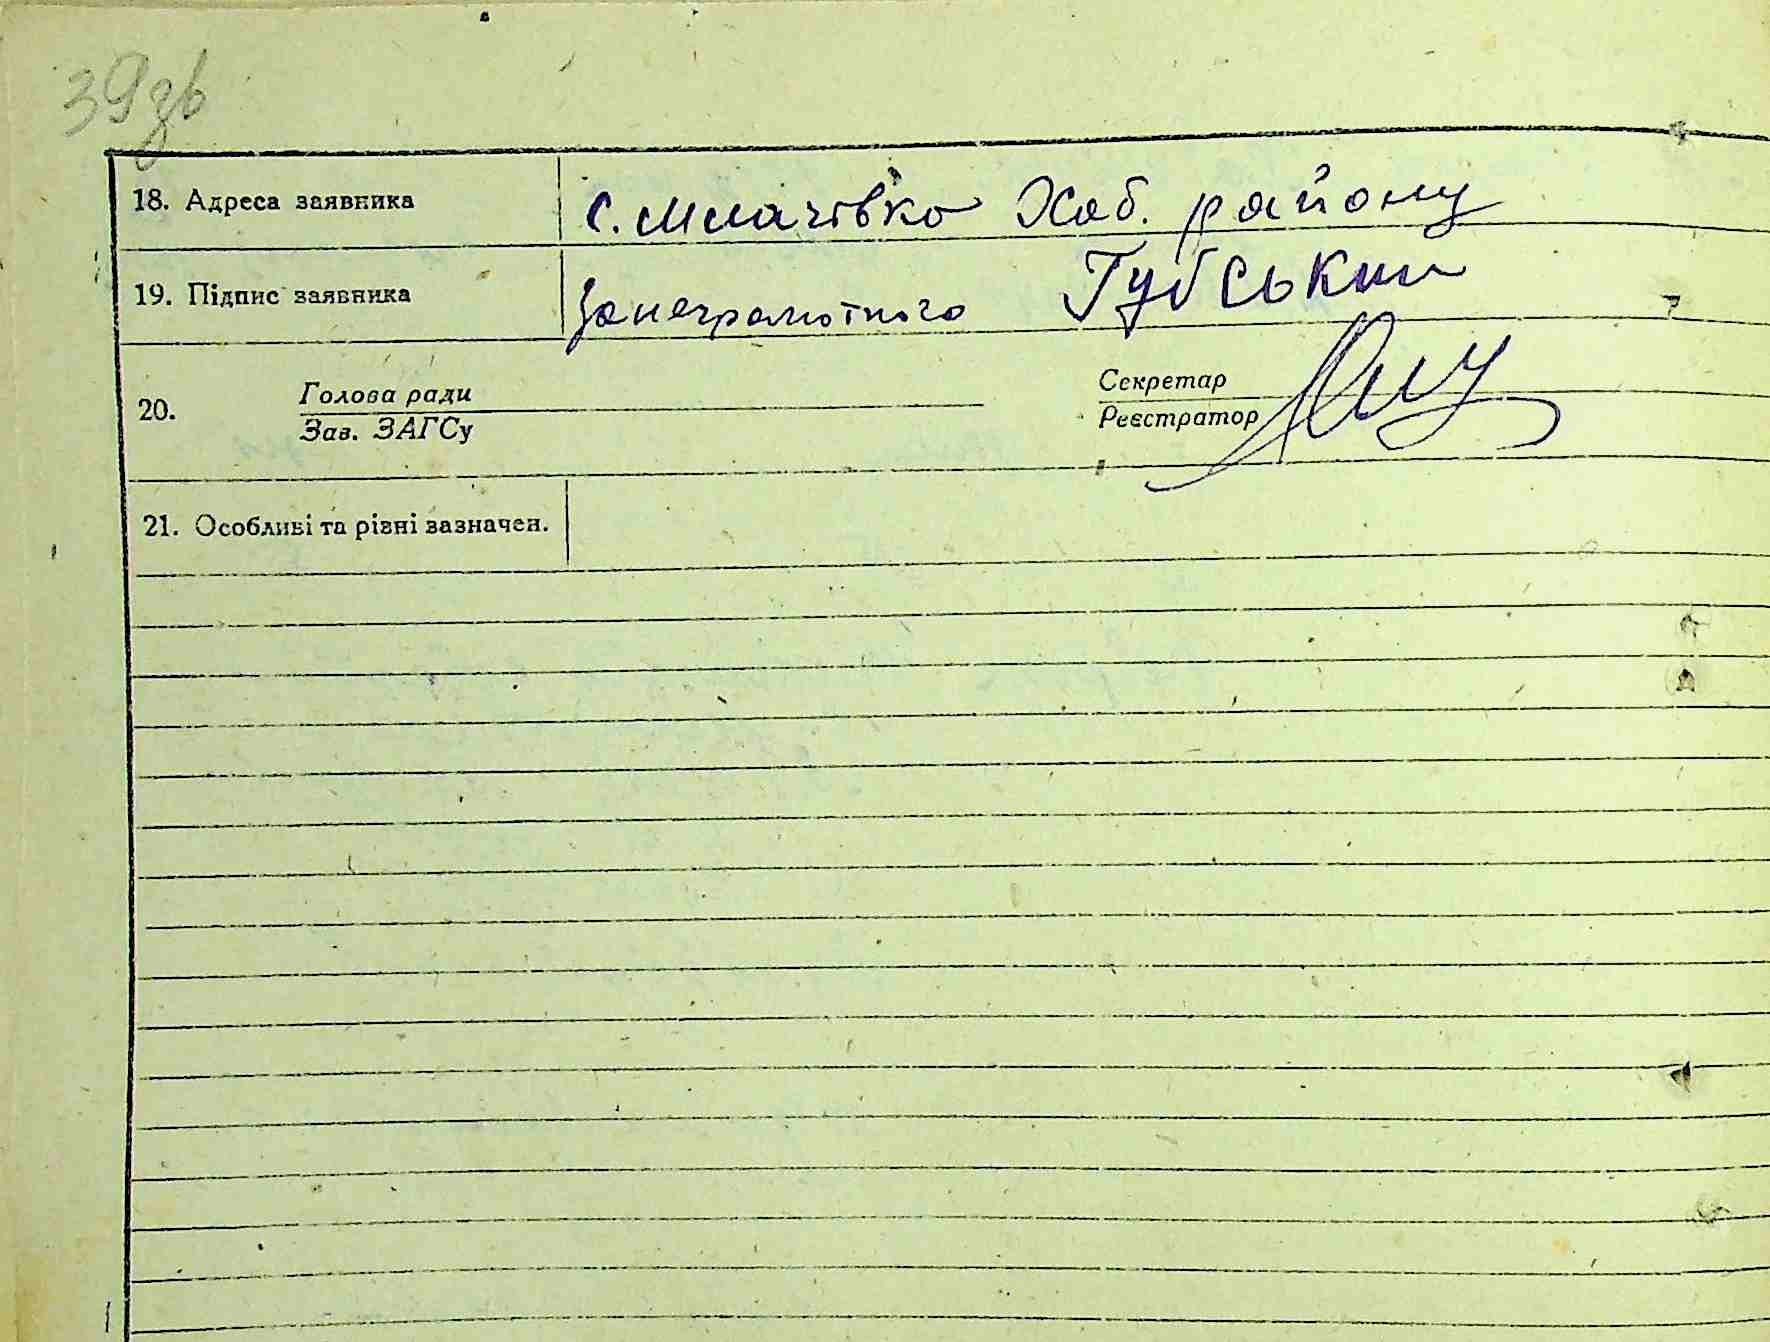 39зв
18. Адреса заявника с. Млачівка Хаб. району
19. Підпис заявника За неграмотного Губський
20. Голова ради Секретар
Зав. ЗАГСу Реєстратор
21. Особливі та різні зазначен.